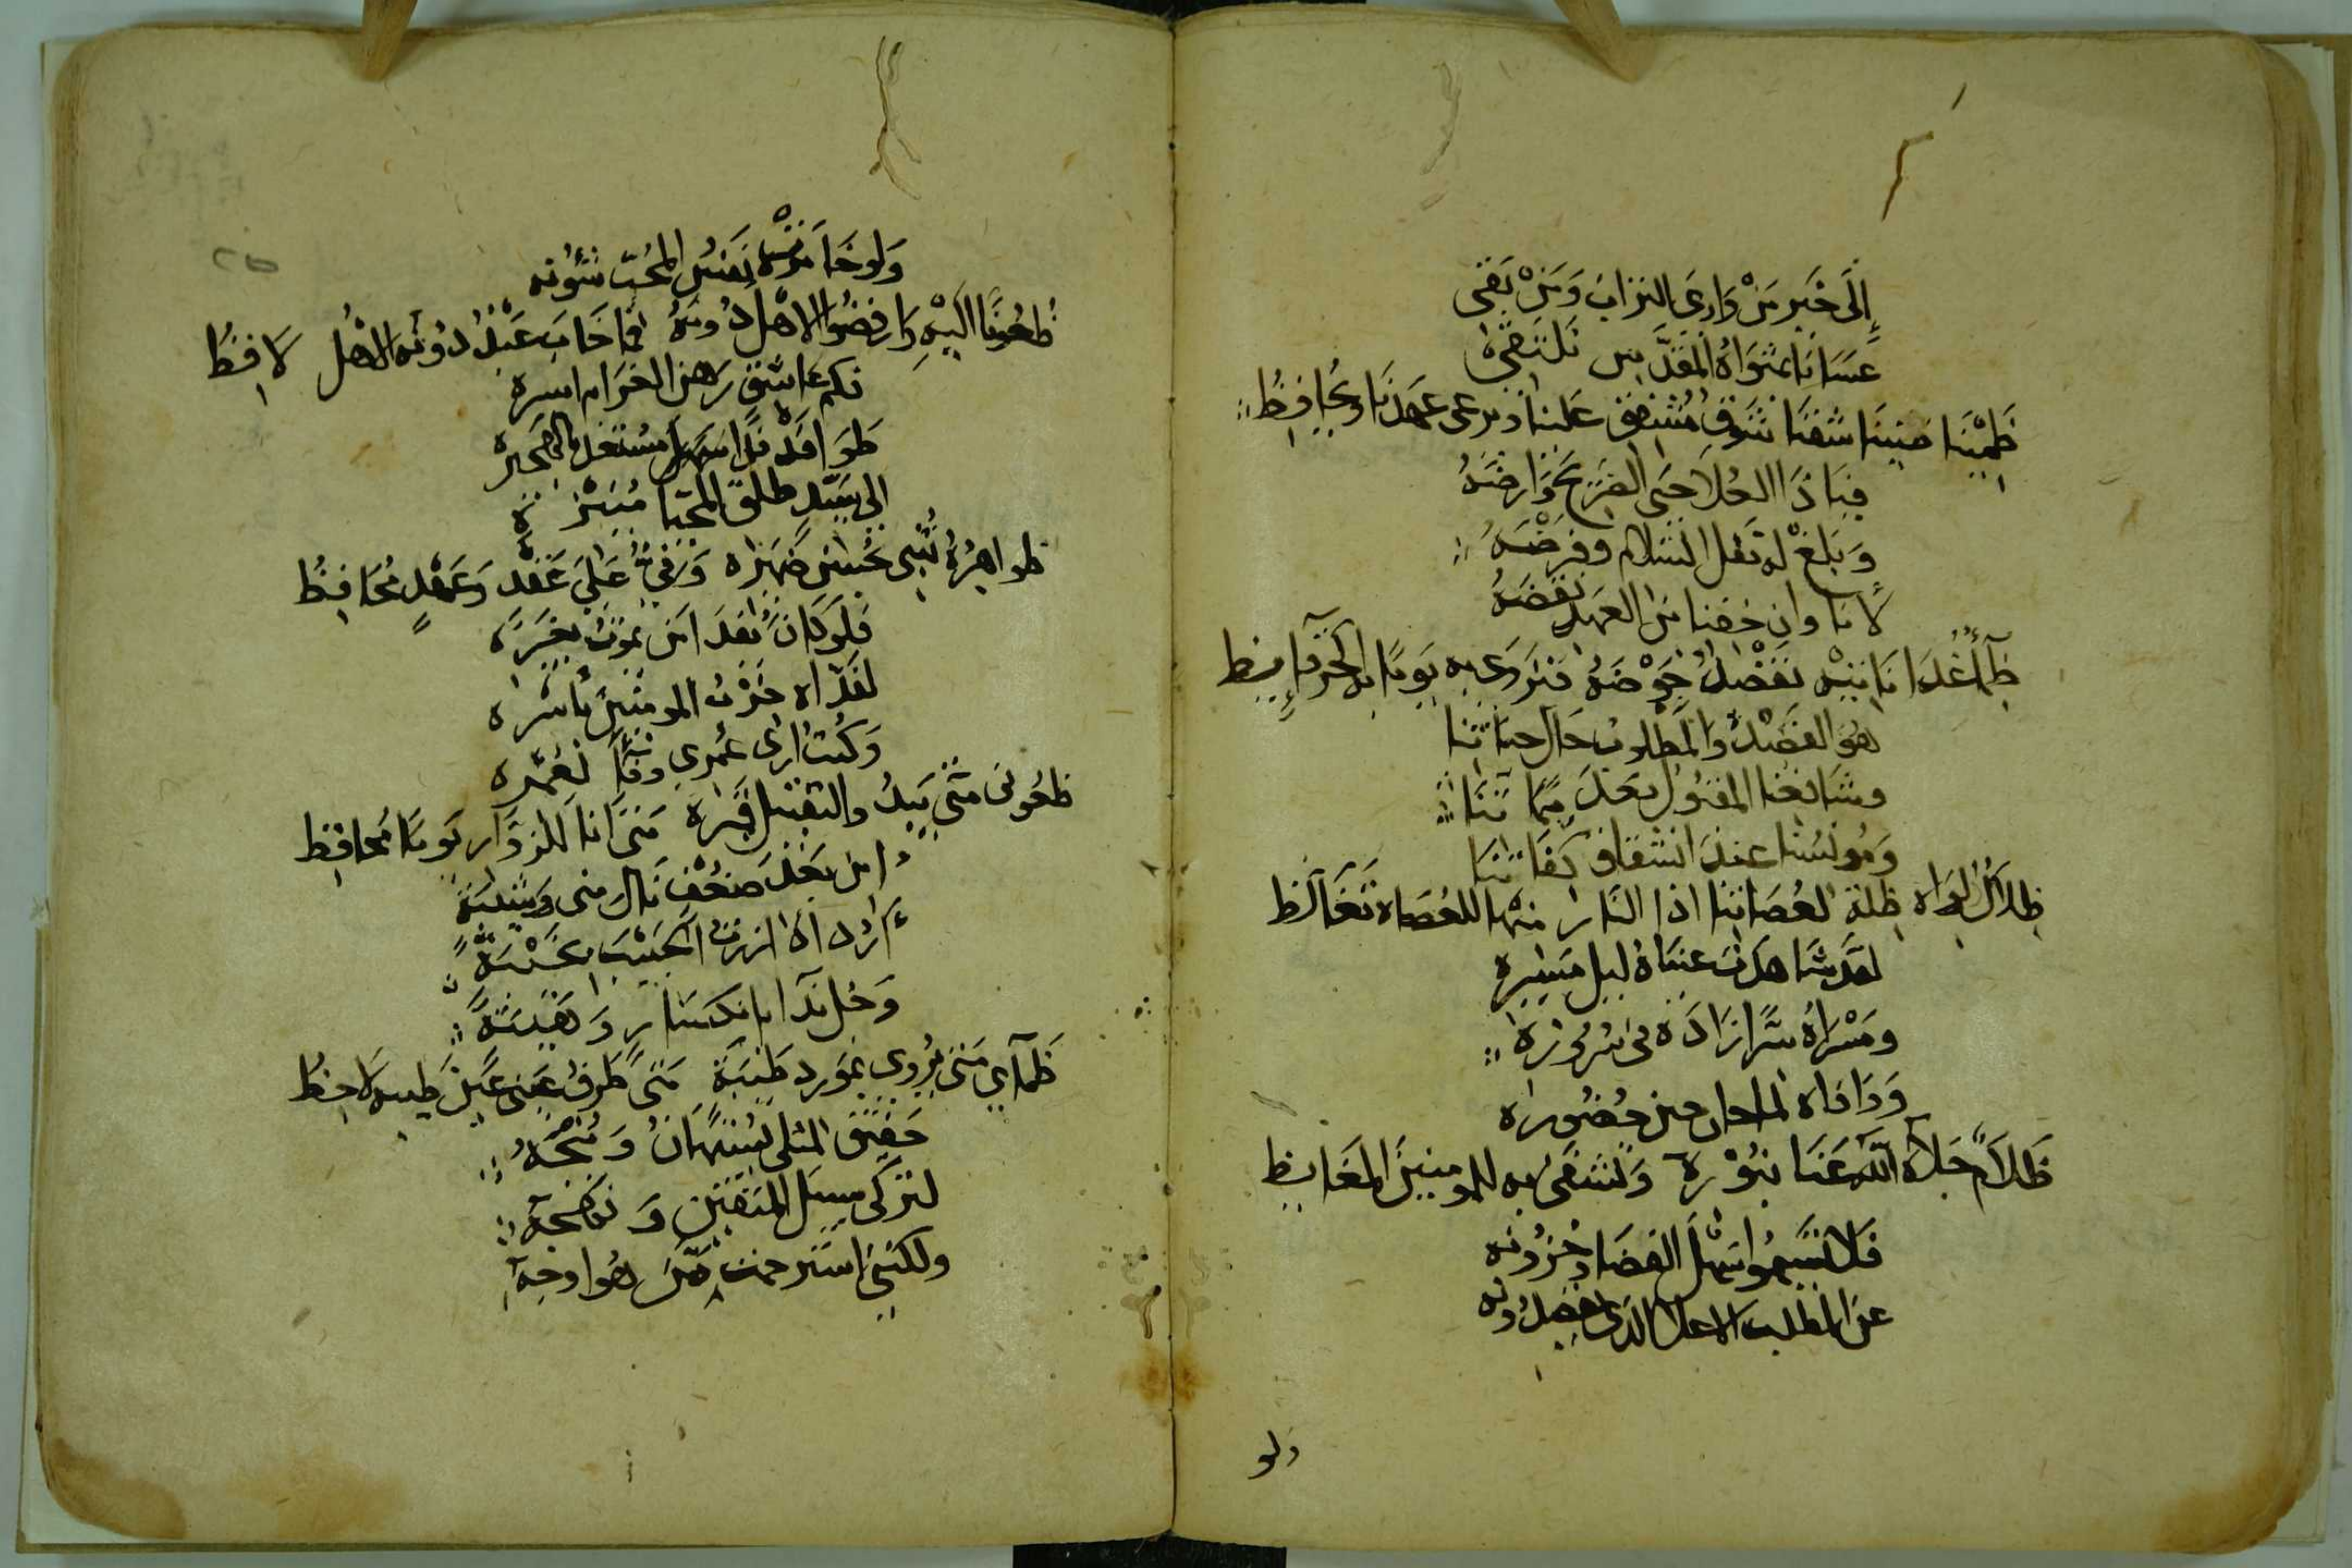 إلى خير من وارى التراب ومن بقى
عسانا بمثواه المقدس نلتقى
ظمينا ضنينا شفنا شوق مشفق علينا ويرعى عهدنا ويحافظ
فيا ذا العلا حى الضريح وأرضه
وبلغ له نقل السلام وفرضه
لأنا وان خفنا من العهد نقضه
ظمأ غدا نأتيه نفضل حوضه فنروى به يوما به الحر
هو القصد والمطلوب حال حياتنا
وشافعنا المقبول بعد مماتنا
ومونسنا عند انشقاق كفاتنا
ظلال لواه ظلة لعصاتنا اذا النار منها للعصاة تغالظ
لقد شاهدت عيناه ليل مسيره
ومسراه سرا زاده فى سروره
وداناه لما حان حين حضوره
ظلام جلاه الله عنا بنوره وتشفى به للمومنين المغايظ
فلا تسيموا سهل الفضا وحزونه
عن المطلب الاعلا الذى
ولو
ولو خامرت نفس المحب شئونه
ظعونا اليه وارفضوا الاهل دونه فما خاب عبد دونه الاهل لافظ
فكم عاشق رهن الغرام اسيره
طوا فدفدا سهلا مستغل هجيره
الى سيد طلق المحيا منيره
ظواهره تنبى بحسن ضميره وفى على عقد وعهد محافظ
فلو كان يفدا من يموت بغيره
لفداه حزب المومنين باسره
وكنت ارى عمرى وفا لعمره
ظعونى متى يبد والتقبيل قبره متى انا للزوار يوما محافظ
امن بعد ضعف نال منى وشيبة
أراد اذا زرت الحبيب بخيبة
وحل ندا بانكسار وهيبة
ظمآى متى يروى بمورد طيبة متى طرف عينى عين طيبه لاحظ
حقيق المثلى يستهان ومنجه
لتركى سبيل المتقين ونهجه
ولكننى استرحمت من هو اوجه